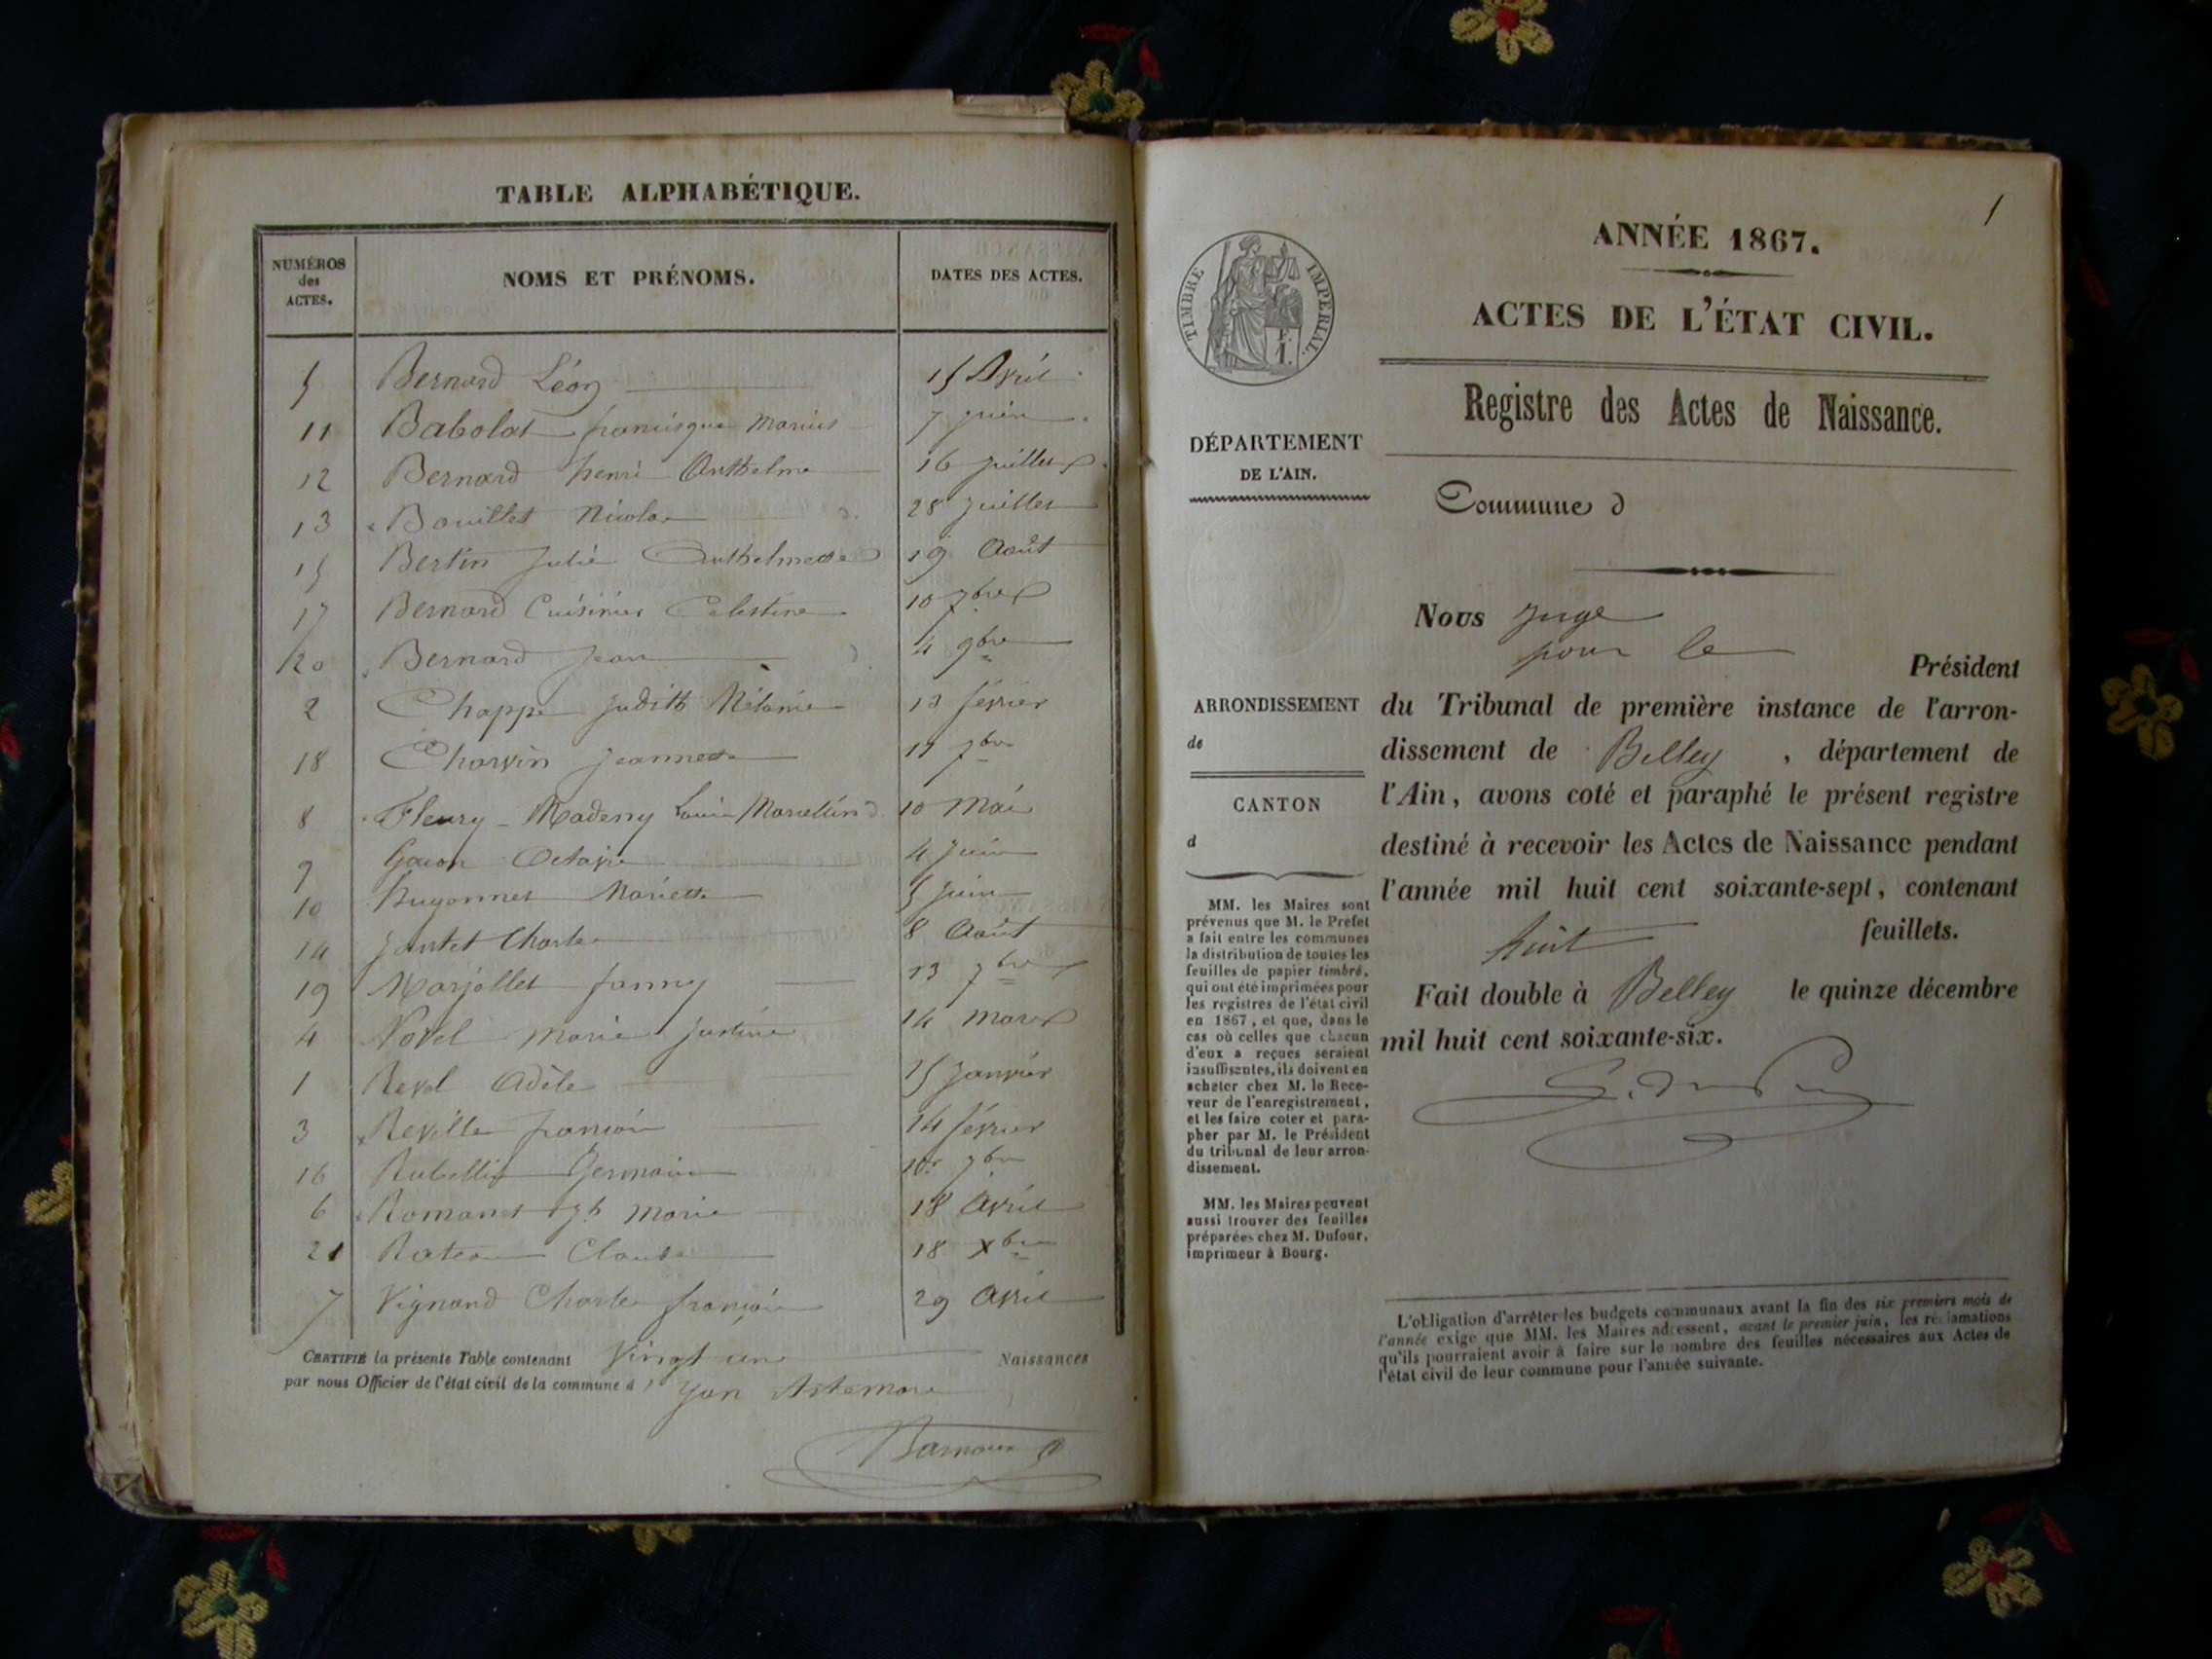 TABLE ALPHABÉTIQUE.
NUMÉROS des ACTES. NOMS ET PRÉNOMS. DATES DES ACTES.
5 Bernard Léon 15 Avril
11 Babolat francisque Marius 7 juin
12 Bernard henri Anthelme 16 juillet
13 Bouillet Nicolas 28 juillet
15 Bertin Julie Anthelmette 19 Août
17 Bernard Cuisinier Celestine 10 7bre
20 Bernard Jean 4 9bre
2 Chappe Judith Mélanie 13 février
18 Charvin Jeannette 11 7bre
8 Fleury Madeny Louis Marcellin 10 Mai
9 Octavie 4 Juin
10 Hugonnet Mariette 5 juin
14 Jantet Charles 8 Août
19 Marjollet fanny 13 7bre
4 Novel marie justine 14 mars
1 Revel Adèle 15 Janvier
3 françois 14 février
16 Rubellin Germain 10 7bre
6 Romanet marie 18 Avril
21 Claude 18 Xbre
7 Vignand Charles françois 29 Avril
CERTIFIÉ la présente Table contenant Vingt une Naissances
par nous Officier de l'état civil de la commune d' Yon Artemare
1
ANNÉE 1867.
ACTES DE L'ÉTAT CIVIL.
Registre des Actes de Naissance.
TIMBRE IMPÉRIAL.
DÉPARTEMENT
DE L'AIN.
Commune d
Nous juge
pour le
Président
ARRONDISSEMENT
de
CANTON
d
du Tribunal de première instance de l'arron-
dissement de Belley, département de
l'Ain, avons coté et paraphé le présent registre
destiné à recevoir les Actes de Naissance pendant
l'année mil huit cent soixante-sept, contenant
huit feuillets.
Fait double à Belley le quinze décembre
mil huit cent soixante-six.
MM. les Maires sont
prévenus que M. le Préfet
a fait entre les communes
la distribution de toutes les
feuilles de papier timbré,
qui ont été imprimées pour
les registres de l'état civil
en 1867, et que, dans le
cas où celles que chacun
d'eux a reçues seraient
insuffisantes, ils doivent en
acheter chez M. le Rece-
veur de l'enregistrement,
et les faire coter et para-
pher par M. le Président
du tribunal de leur arron-
dissement.
MM. les Maires peuvent
aussi trouver des feuilles
préparées chez M. Dufour,
imprimeur à Bourg.
L'obligation d'arrêter les budgets communaux avant la fin des six premiers mois de
l'année exige que MM. les Maires adressent, avant le premier juin, les réclamations
qu'ils pourraient avoir à faire sur le nombre des feuilles nécessaires aux Actes de
l'état civil de leur commune pour l'année suivante.